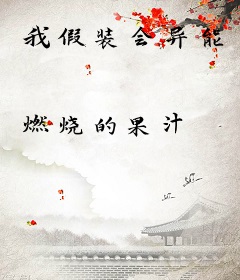 我假装会异能
燃烧的果汁